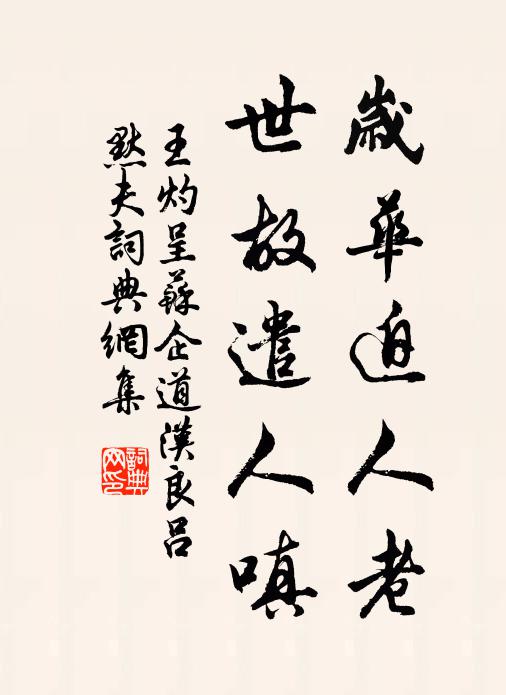 歲華迫人老
世故遣人嗔
王灼呈蘇企道漢良呂
默夫詞典網集
詞典網印